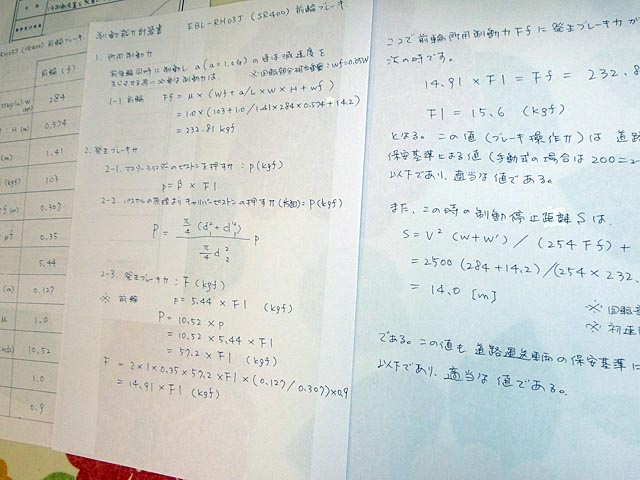 RH03J (SR400) 前輪ブレーキ
前輪 (f)
284
H (m)
0.574
(m)
1.41
(kgf)
103
f (m)
0.307
μf
0.35
5.44
(m)
0.127
μ
1.0
10.52
1.0
0.9
制動能力計算書 EBL-RH03J (SR400) 前輪ブレーキ
1. 所用制動力
前後輪同時に制動し a (a = 1.0G) の時は減速度を
※回転部分相当重量 : wf = 0.05W
1-1 前輪 Ff = μ × (Wf + a/L × W × H + wf)
= 1.0 × (103 + 1.0 / 1.41 × 284 × 0.574 + 14.2)
= 232.81 kgf
2. 発生ブレーキカ
2-1. マスターシリンダーのピストンを押す力 : p (kgf)
p = β × F1
2-2. キャリパーピストンの押す力 (片面) : P (kgf)
P = π/4 (d²1 + d'²1) / π/4 d²2 p
2-3. 発生ブレーキカ : F (kgf)
※ 前輪 p = 5.44 × F1 (kgf)
P = 10.52 × p
= 10.52 × 5.44 × F1
= 57.2 × F1 (kgf)
F = 2 × 1 × 0.35 × 57.2 × F1 × (0.127 / 0.307) × 0.9
= 14.91 × F1 (kgf)
ここで前輪所用制動力 Ff に発生ブレーキカが
次の時です。
14.91 × F1 = Ff = 232.8
F1 = 15.6 (kgf)
となる。この値 (ブレーキ操作力) は 道路
保安基準による値 (手動式の場合は 200 =
以下であり、適当な値である。
また、この時の制動停止距離 S は、
S = V² (W + W') / (254 Ff) +
= 2500 (284 + 14.2) / (254 × 232.
= 14.0 [m]
※ 回転部
※ 初速
である。この値も 道路運送車両の保安基準に
以下であり、適当な値である。